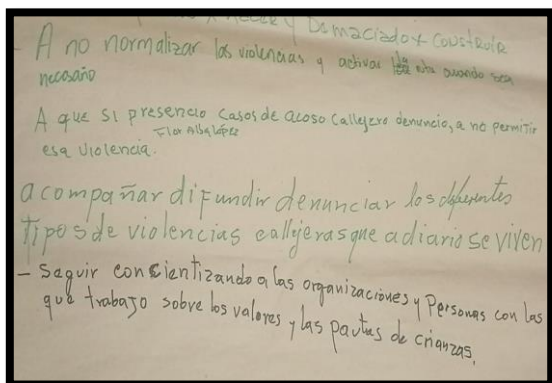 y Demaciado x construir
- A no normalizar las violencias y activar la ruta cuando sea
necesario
A que si presencio casos de acoso callejero denuncio, a no permitir
Flor Alba López
esa violencia.
acompañar difundir denunciar los diferentes
tipos de violencias callejeras que a diario se viven
- Seguir concientizando a las organizaciones y Personas con las
que trabajo sobre los valores y las pautas de crianzas.